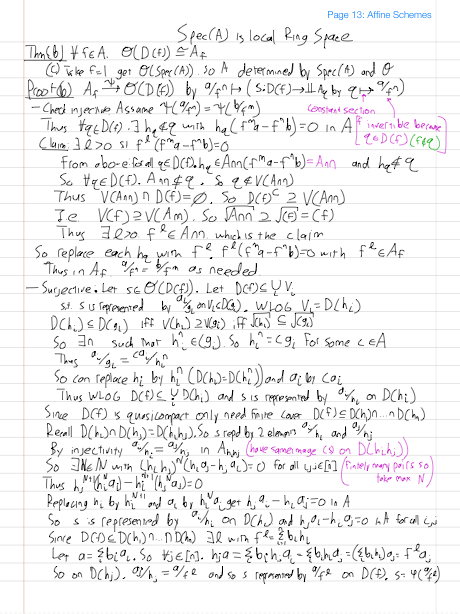 Page 13: Affine Schemes
Spec(A) is local Ring Space
Thm(b) ∀ f∈A. O(D(f)) ≅ A_f
(c) Take f=1 get O(Spec(A)). So A determined by Spec(A) and O
Proof(b) A_f →^ψ O(D(f)) by a/f^n ↦ (s:D(f)→⊔A_q by q↦a/f^n)
- Check injective Assume ψ(a/f^n)=ψ(b/f^m) constant section
Thus ∀q∈D(f). ∃ h_q∉q with h_q(f^m a-f^n b)=0 in A (f invertible because q∈D(f) (f∉q))
Claim: ∃ l>0 st f^l(f^m a-f^n b)=0
From above for all q∈D(f). h_q∈Ann(f^m a-f^n b)=Ann and h_q∉q
So ∀q∈D(f). Ann⊄q. So q∉V(Ann)
Thus V(Ann)∩D(f)=∅. So D(f)^c ⊇ V(Ann)
Ie V(f)⊇V(Ann). So √Ann ⊇ √(f)=(f)
Thus ∃ l>0 f^l∈Ann which is the claim
So replace each h_q with f^l. f^l(f^m a-f^n b)=0 with f^l∈A_f
Thus in A_f. a/f^n = b/f^m as needed
- Surjective: Let s∈O(D(f)). Let D(f)⊆∪V_i
s.t. s is represented by a_i/g_i on V_i⊆D(g_i). WLOG V_i=D(h_i)
D(h_i)⊆D(g_i) iff V(h_i)⊇V(g_i) iff √(h_i)⊆√(g_i)
So ∃n such that h_i^n∈(g_i). So h_i^n=cg_i for some c∈A
Thus a_i/g_i = ca_i/h_i^n
So can replace h_i by h_i^n (D(h_i)=D(h_i^n)) and a_i by ca_i
Thus WLOG D(f)⊆∪D(h_i) and s is represented by a_i/h_i on D(h_i)
Since D(f) is quasicompact only need finite cover D(f)⊆D(h_1)∩...∩D(h_n)
Recall D(h_i)∩D(h_j)=D(h_i h_j). So s repd by 2 elements a_i/h_i and a_j/h_j
By injectivity a_i/h_i = a_j/h_j in A_{h_i h_j} (have same image (s) on D(h_i h_j))
So ∃N∈ℕ with (h_i h_j)^N(h_j a_i-h_i a_j)=0 for all i,j∈[n] (finitely many pairs so take max N)
Thus h_j^{N+1}(h_i^N a_i)-h_i^{N+1}(h_j^N a_j)=0
Replacing h_i by h_i^{N+1} and a_i by h_i^N a_i get h_j a_i-h_i a_j=0 in A
So s is represented by a_i/h_i on D(h_i) and h_j a_i-h_i a_j=0 in A for all i,j
Since D(f)⊆D(h_1)∩...∩D(h_n) ∃l with f^l=Σb_i h_i
Let a=Σb_i a_i. So ∀j∈[n]. h_j a=Σb_i h_j a_i=Σb_i h_i a_j=(Σb_i h_i)a_j=f^l a_j
So on D(h_j). a_j/h_j = a/f^l and so s represented by a/f^l on D(f). s=ψ(a/f^l)